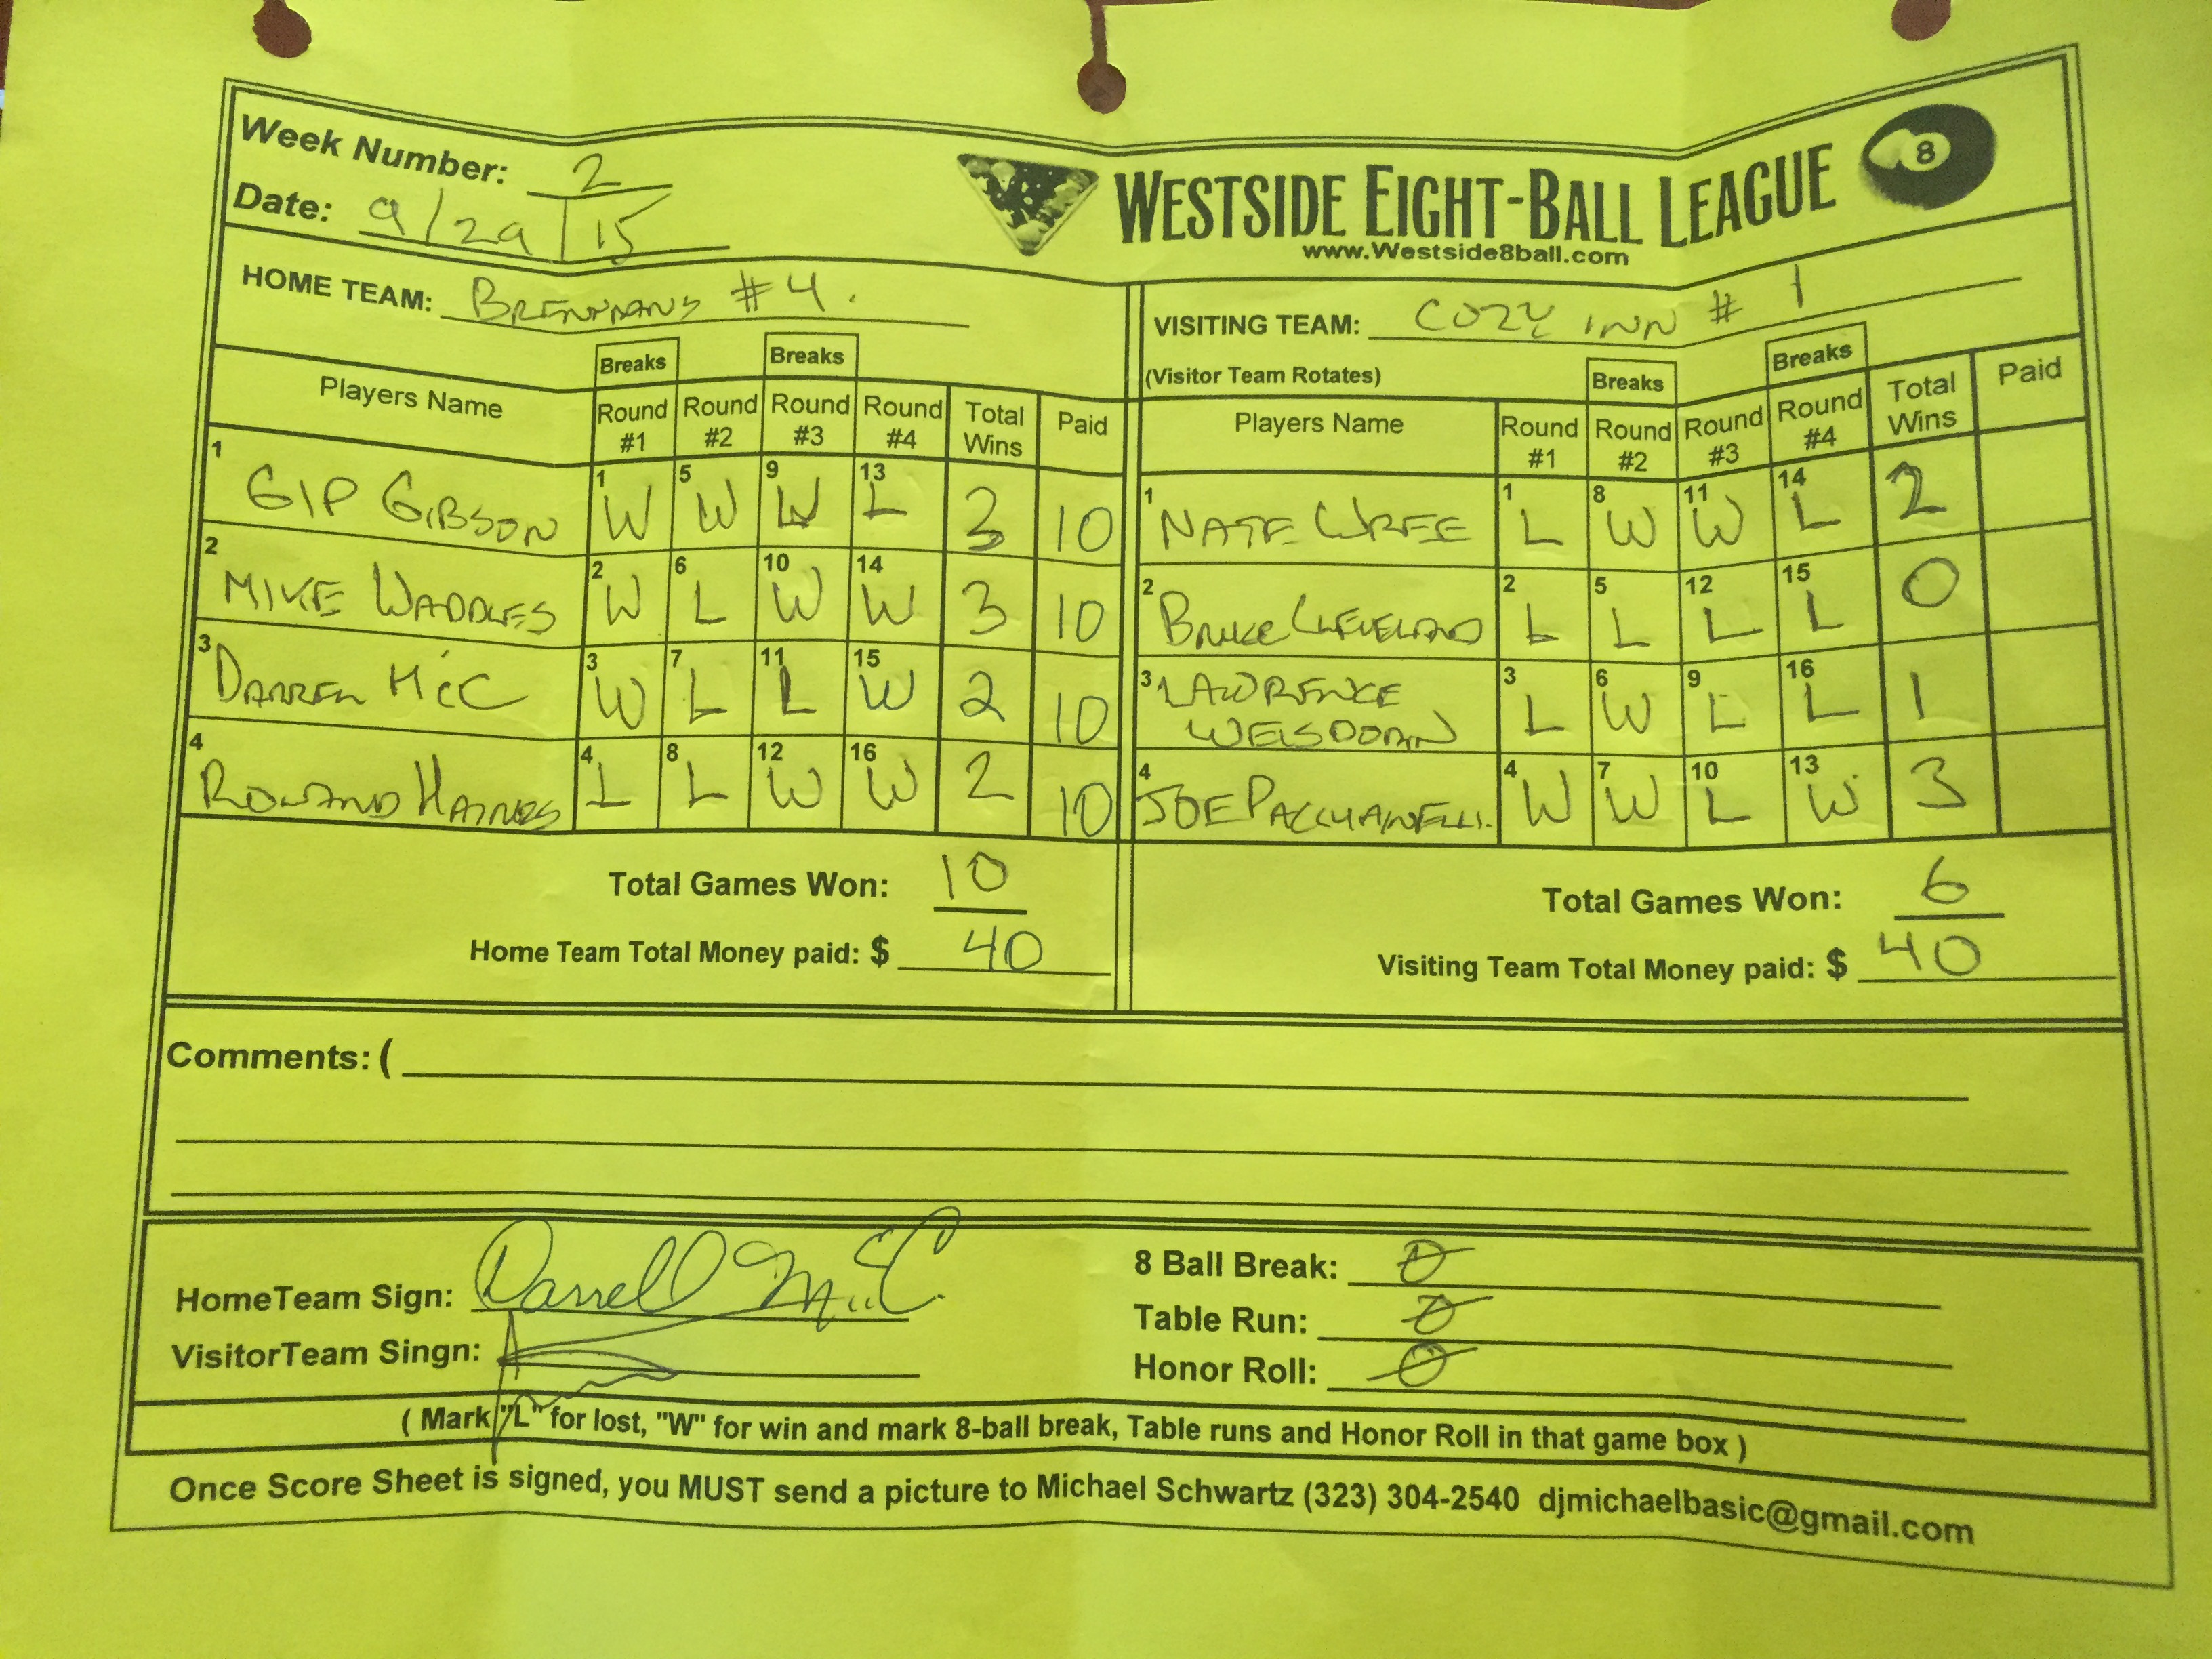 Week Number: 2
Date: 9/29/15
WESTSIDE EIGHT-BALL LEAGUE 8
www.Westside8ball.com
HOME TEAM: BRENNANS #4.
VISITING TEAM: COZY INN # 1
(Visitor Team Rotates)
Breaks Breaks Breaks Breaks
Players Name Round #1 Round #2 Round #3 Round #4 Total Wins Paid Players Name Round #1 Round #2 Round #3 Round #4 Total Wins Paid
1 GIP GIBSON 1 W 5 W 9 W 13 L 3 10 1 NATE 1 L 8 W 11 W 14 L 2
2 MIKE WADDLES 2 W 6 L 10 W 14 W 3 10 2 CLEVELAND 2 L 5 L 12 L 15 L 0
3 DARREL MCC 3 W 7 L 11 L 15 W 2 10 3 LAWRENCE WEISDORN 3 L 6 W 9 L 16 L 1
4 ROLAND HAINES 4 L 8 L 12 W 16 W 2 10 4 JOE 4 W 7 W 10 L 13 W 3
Total Games Won: 10
Home Team Total Money paid: $ 40
Total Games Won: 6
Visiting Team Total Money paid: $ 40
Comments: (
HomeTeam Sign: Darrell McC.
VisitorTeam Singn:
8 Ball Break: 0
Table Run: 0
Honor Roll: 0
( Mark "L" for lost, "W" for win and mark 8-ball break, Table runs and Honor Roll in that game box )
Once Score Sheet is signed, you MUST send a picture to Michael Schwartz (323) 304-2540 djmichaelbasic@gmail.com